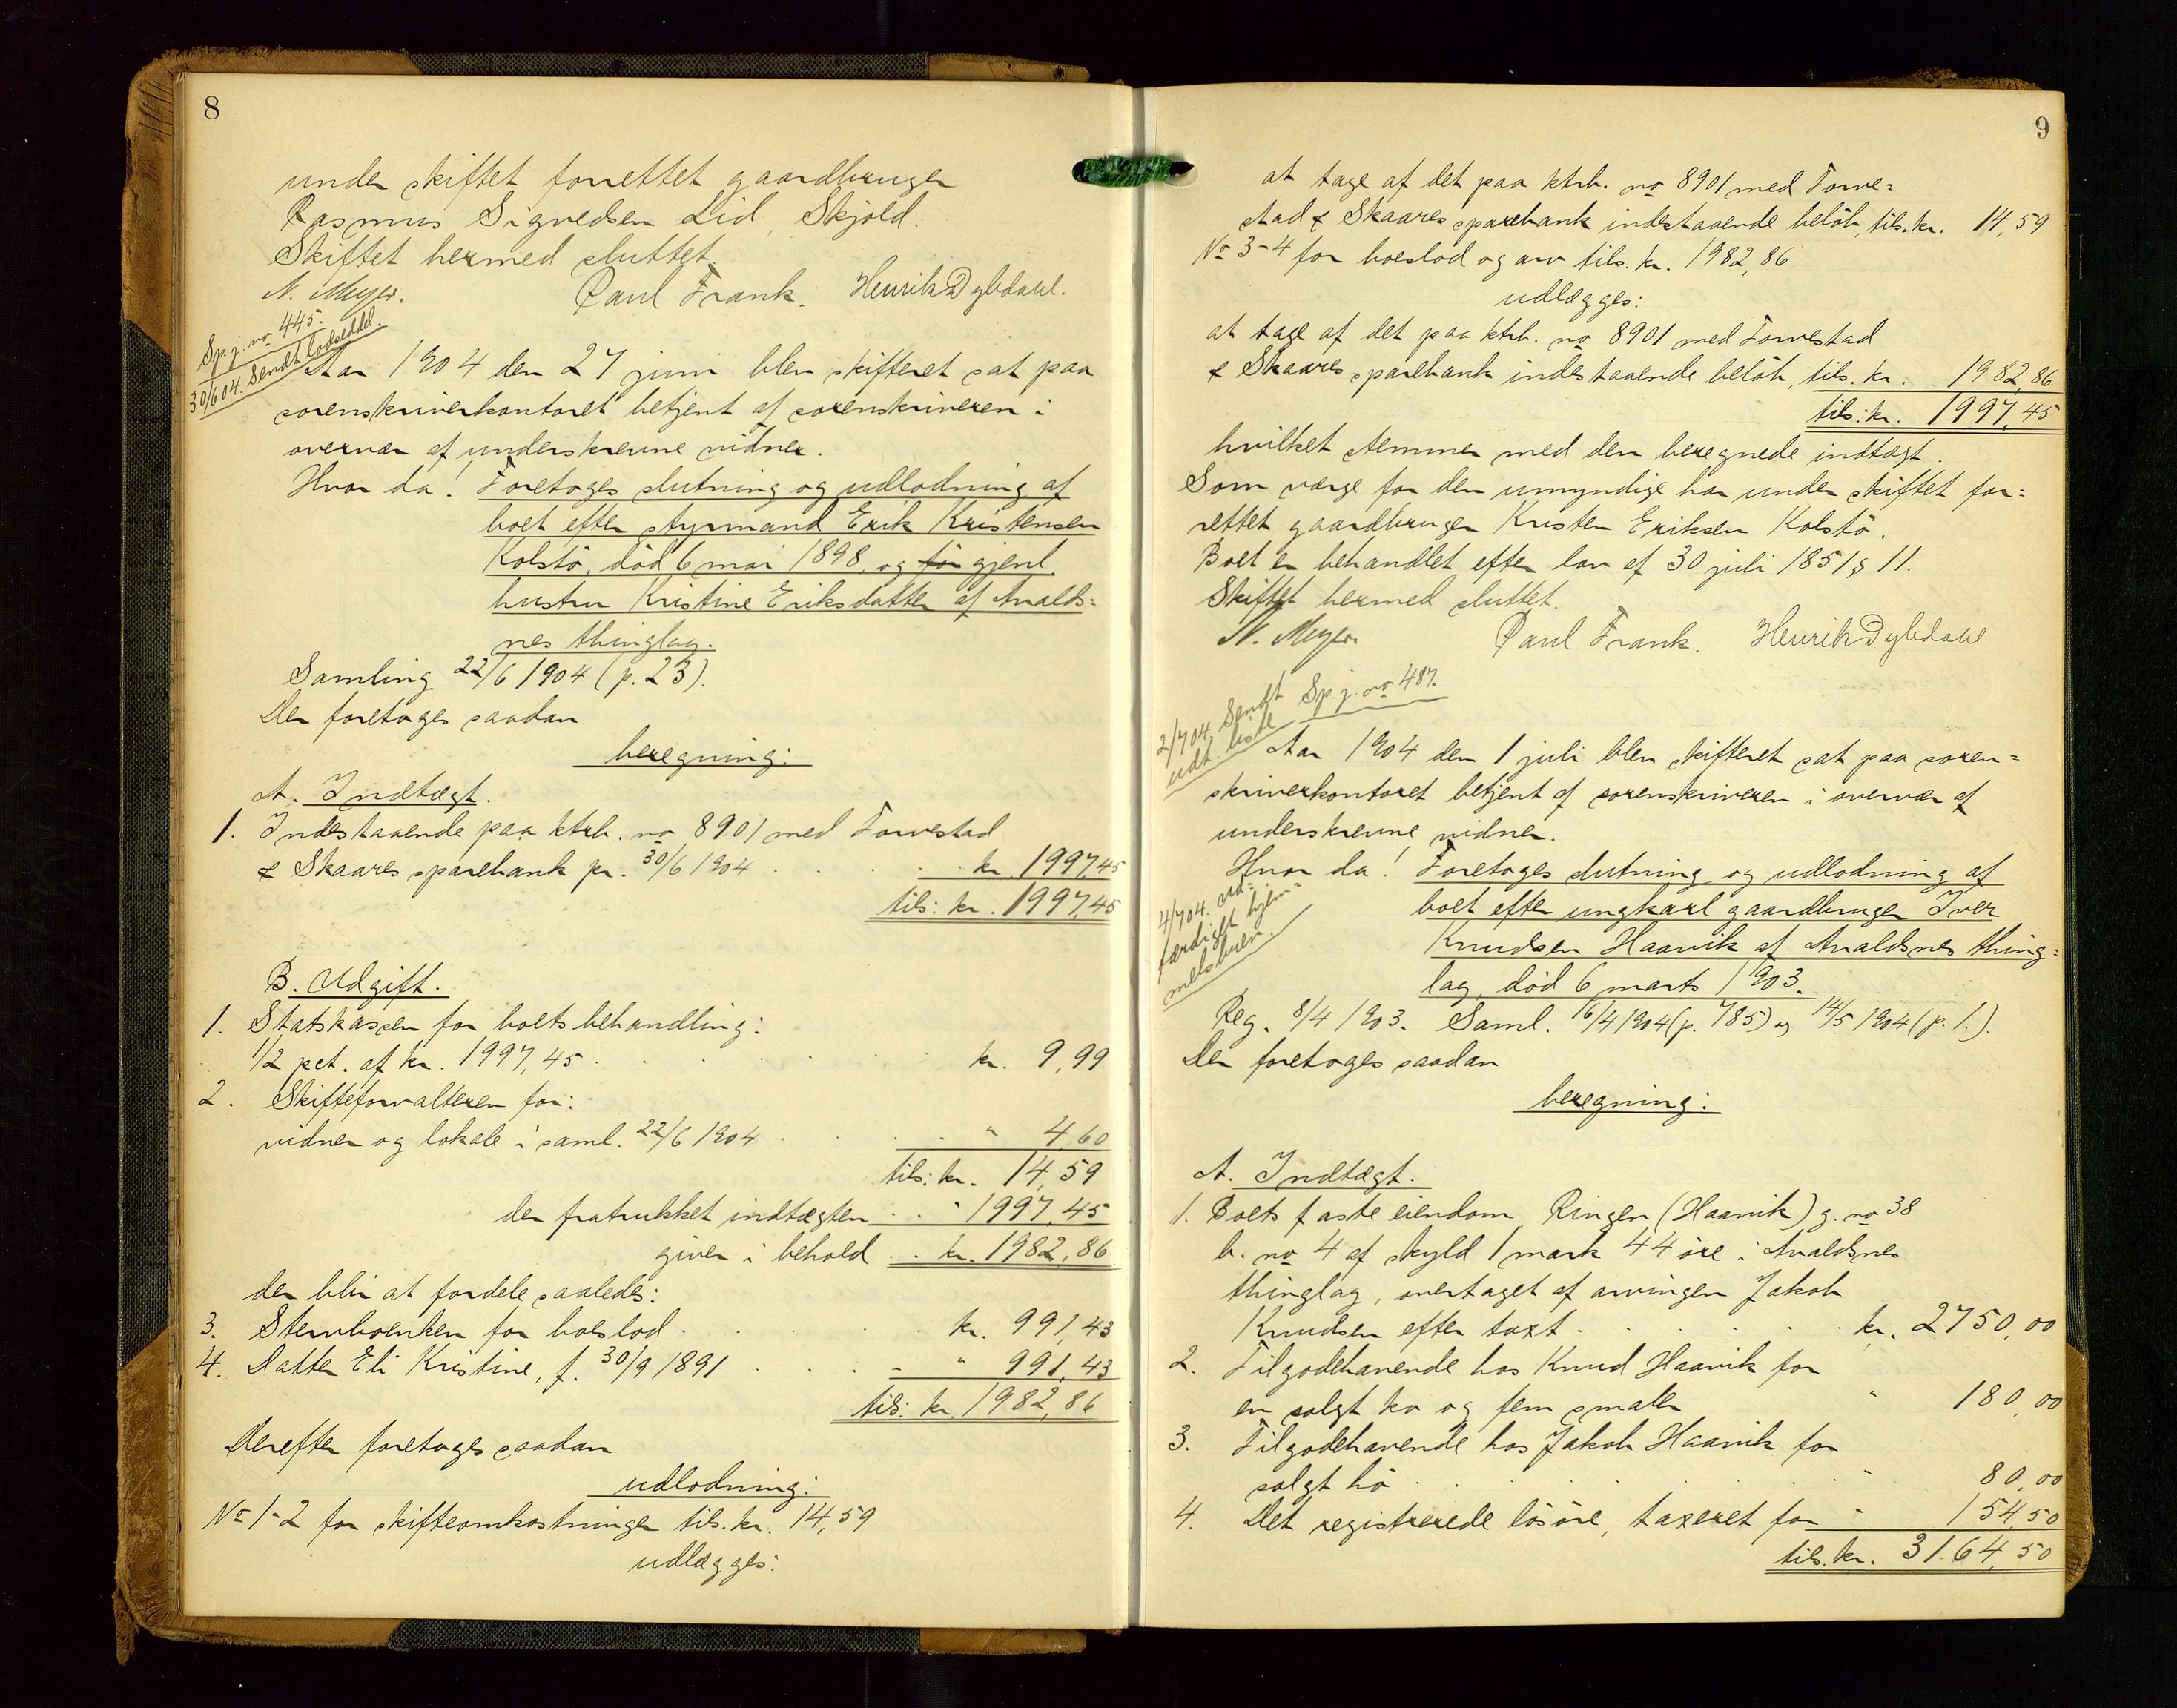 8
under skiftet forrettet gaardbruger
Rasmus Sigvedsen Lid, Skjold.
Skiftet hermed sluttet.
N. Meyer. Paul Frank. Henrik Dybdahl.
Sp. j. no 445.
30/6 04. Sendt lodseddel.
Aar 1904 den 27 juni blev skifteret sat paa
sorenskriverkontoret betjent af sorenskriveren i
overvær af underskrevne vidner.
Hvor da! Foretoges slutning og udlodning af
boet efter styrmand Erik Kristensen
Kolstö, död 6 mai 1898, og för gjenl.
hustru Kristine Eriksdatter af Avalds=
nes thinglag.
Samling 22/6 1904 (p. 23).
Der foretoges saadan
beregning:
A. Indtægt.
1. Indestaaende paa ktrb. no 8901 med Torvestad
& Skaares sparebank pr. 30/6 1904 . . . . kr. 1997,45
tils: kr. 1997,45
B. Udgift.
1. Statskassen for boets behandling:
1/2 pct. af kr. 1997,45 . . . . kr. 9,99
2. Skifteforvalteren for:
vidner og lokale i saml. 22/6 1904 . . . . " 4,60
tils: kr. 14,59
der fratrukket indtægten . . " 1997,45
giver i behold . . kr. 1982,86
der blir at fordele saaledes:
3. Stervboenken for boslod . . . . kr. 991,43
4. Datter Eli Kristine, f. 30/9 1891 . . . . " 991,43
tils: kr. 1982,86
Derefter foretoges saadan
udlodning:
No 1-2 for skifteomkostninger tils. kr. 14,59
udlægges:
9
at tage af det paa ktrb. no 8901 med Torve=
stad & Skaares sparebank indestaaende belöb, tils. kr. 14,59
No 3-4 for boeslod og arv tils. kr. 1982,86
udlægges:
at tage af det paa ktrb. no 8901 med Torvestad
& Skaares sparebank indestaaende belöb, tils. kr. 1982,86
tils: kr. 1997,45
hvilket stemmer med den beregnede indtægt.
Som værge for den umyndige har under skiftet for=
rettet gaardbruger Kristen Eriksen Kolstö.
Boet er behandlet efter lov af 30 juli 1851 § 11.
Skiftet hermed sluttet.
N. Meyer. Paul Frank. Henrik Dybdahl.
Sp. j. no 487.
2/7 04. Sendt
udt. liste
Aar 1904 den 1 juli blev skifteret sat paa soren=
skriverkontoret betjent af sorenskriveren i overvær af
underskrevne vidner.
Hvor da! Foretoges slutning og udlodning af
boet efter ungkarl gaardbruger Iver
Knudsen Haavik af Avaldsnes thing=
lag, död 6 marts 1903.
4/7 04. Ud=
færdiget hjem=
melsbrev.
Reg. 8/4 1903. Saml. 16/4 1904 (p. 785) og 14/5 1904 (p. 1.).
Der foretoges saadan
beregning:
A. Indtægt.
1. Boets faste eiendom, Ringen (Haavik) g. no 38
b. no 4 af skyld 1 mark 44 öre i Avaldsnes
thinglag, overtaget af arvingen Jakob
Knudsen efter taxt . . . . kr. 2750,00
2. Tilgodehavende hos Knud Haavik for
en solgt ko og fem smaler " 180,00
3. Tilgodehavende hos Jakob Haavik for
solgt hö . . . . " 80,00
4. Det registrerede lösöre, taxeret for " 154,50
tils. kr. 3164,50